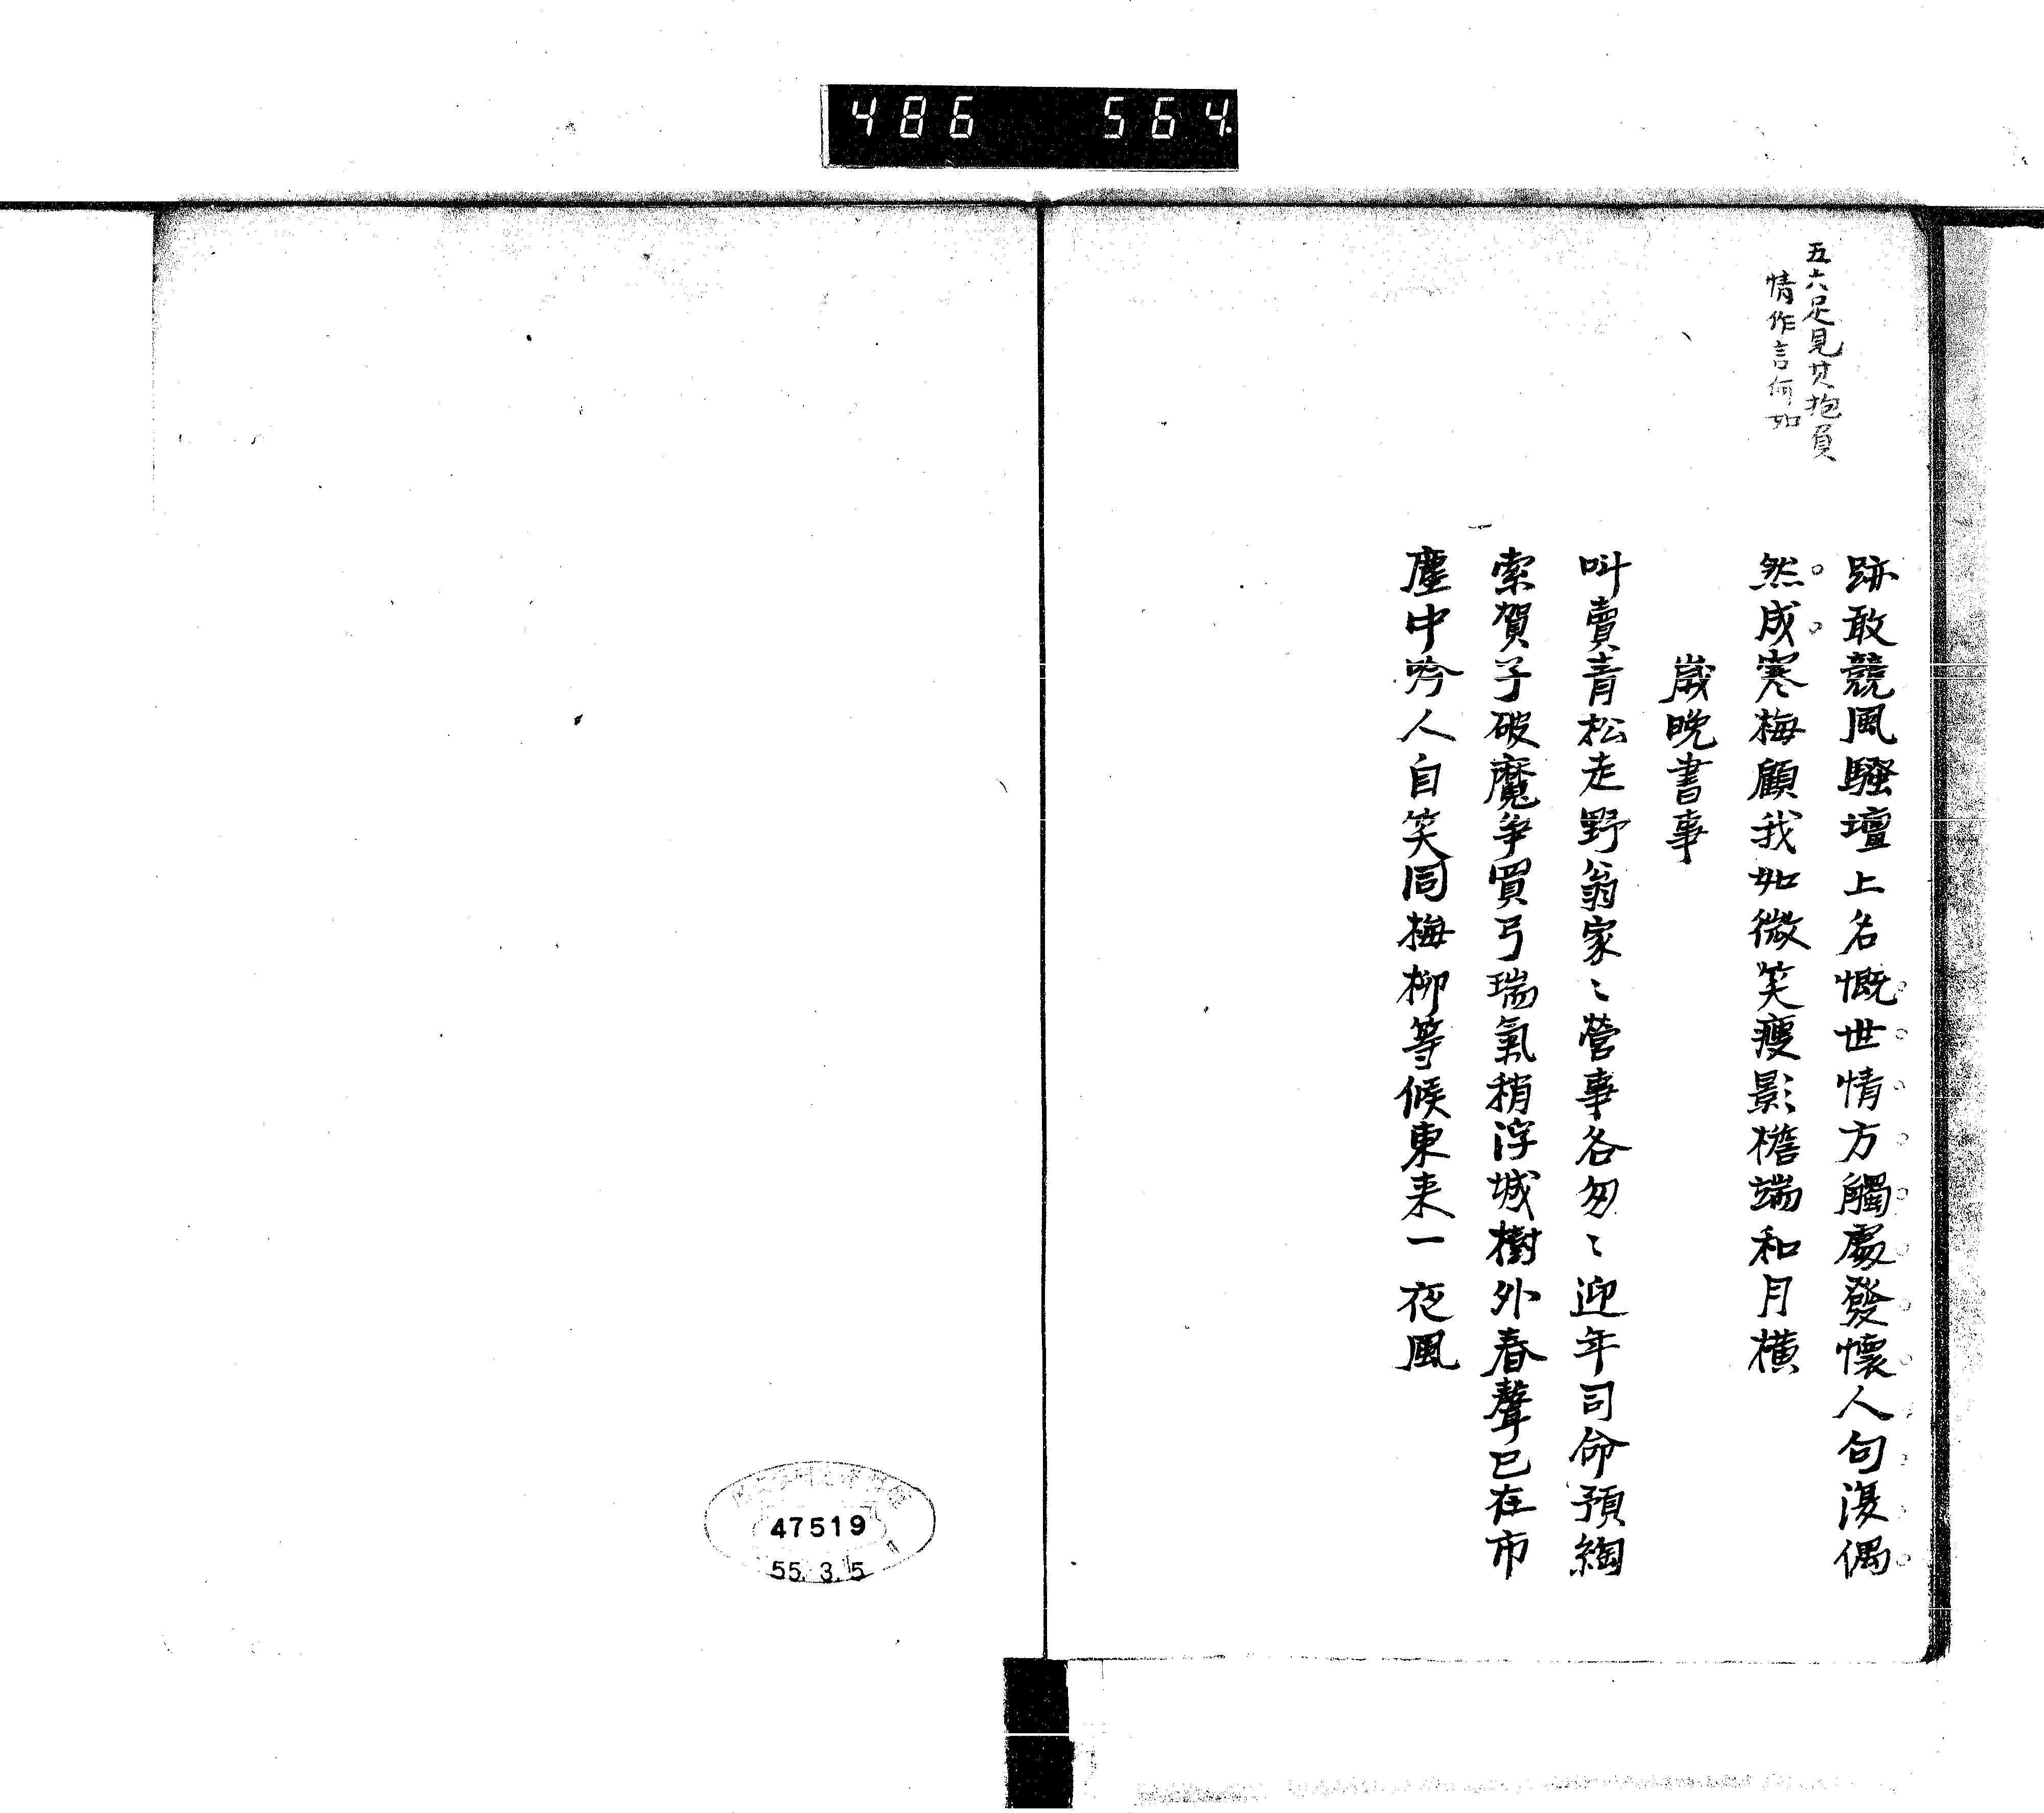 486 564
五六足見其抱負
情作言何如
跡敢競風騷壇上名慨世情方觸處發懷人句漫偶
然成寒梅顧我如微笑瘦影檐端和月橫
歳晩書事
叫賣青松走野翁家〻營事各匆〻迎年司命預綯
索賀子破魔争買弓瑞氣稍浮城樹外春聲已在市
塵中吟人自笑同梅柳等候東来一夜風
47519
55.3.5